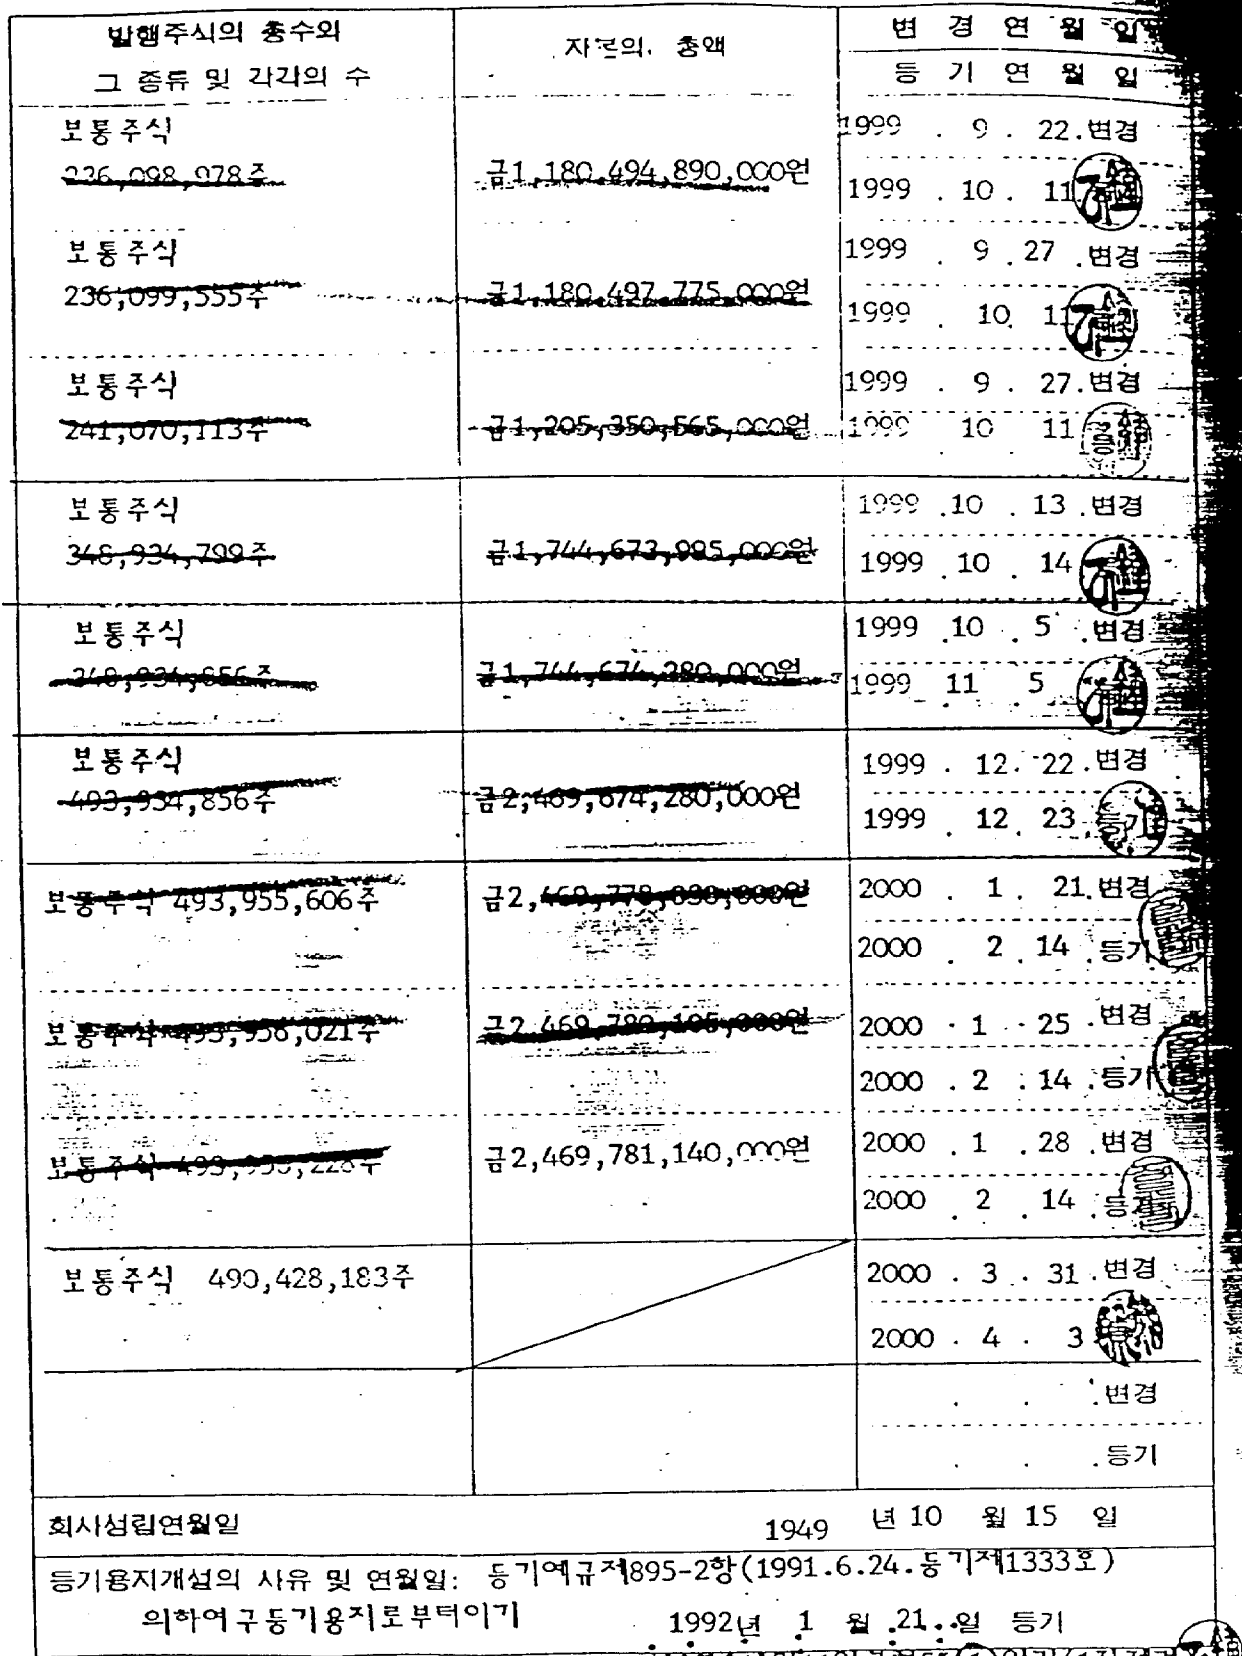 발행주식의 총수와
그 종류 및 각각의 수
자본의 총액
변 경 연 월 일
등 기 연 월 일
보통주식
236,098,978주
금1,180,494,890,000원
1999 . 9 . 22.변경
1999 . 10 . 11
보통주식
236,099,555주
금1,180,497,775,000원
1999 . 9 . 27 .변경
1999 . 10. 11
보통주식
241,070,113주
금1,205,350,565,000원
1999 . 9 . 27.변경
1999 10 11 등기
보통주식
348,934,799주
금1,744,673,995,000원
1999 .10 . 13 .변경
1999 .10 . 14
보통주식
348,934,856주
금1,744,674,280,000원
1999 .10 . 5 .변경
1999 11 5
보통주식
493,934,856주
금2,469,674,280,000원
1999 . 12. 22.변경
1999 . 12. 23 등기
보통주식 493,955,606주
금2,469,778,030,000원
2000 . 1 . 21.변경
2000 . 2 . 14 등기
보통주식 493,956,021주
금2,469,780,105,000원
2000 . 1 . 25 .변경
2000 . 2 . 14 .등기
보통주식 493,956,228주
금2,469,781,140,000원
2000 . 1 . 28 .변경
2000 . 2 . 14 .등기
보통주식 490,428,183주
2000 . 3 . 31 .변경
2000 . 4 . 3
. . .변경
. . .등기
회사성립연월일 1949 년 10 월 15 일
등기용지개설의 사유 및 연월일: 등기예규제895-2항(1991.6.24.등기제1333호)
의하여구등기용지로부터이기 1992년 1 월 21 일 등기